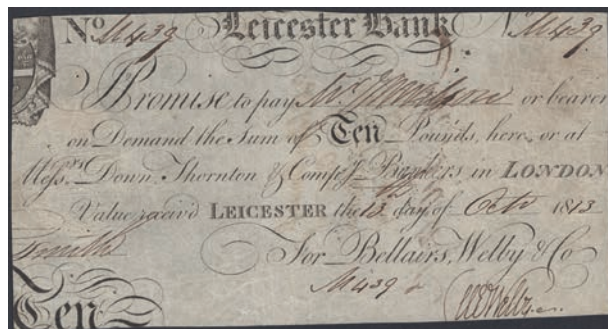 No M439 Leicester Bank No M439
I Promise to pay Mr or bearer
on Demand the Sum of Ten Pounds, here, or at
Messrs. Down Thornton & Compy. Bankers in LONDON
Value receiv'd LEICESTER the 13 day of Octr 1813
Smith
For Bellairs, Welby & Co
M439
Ten